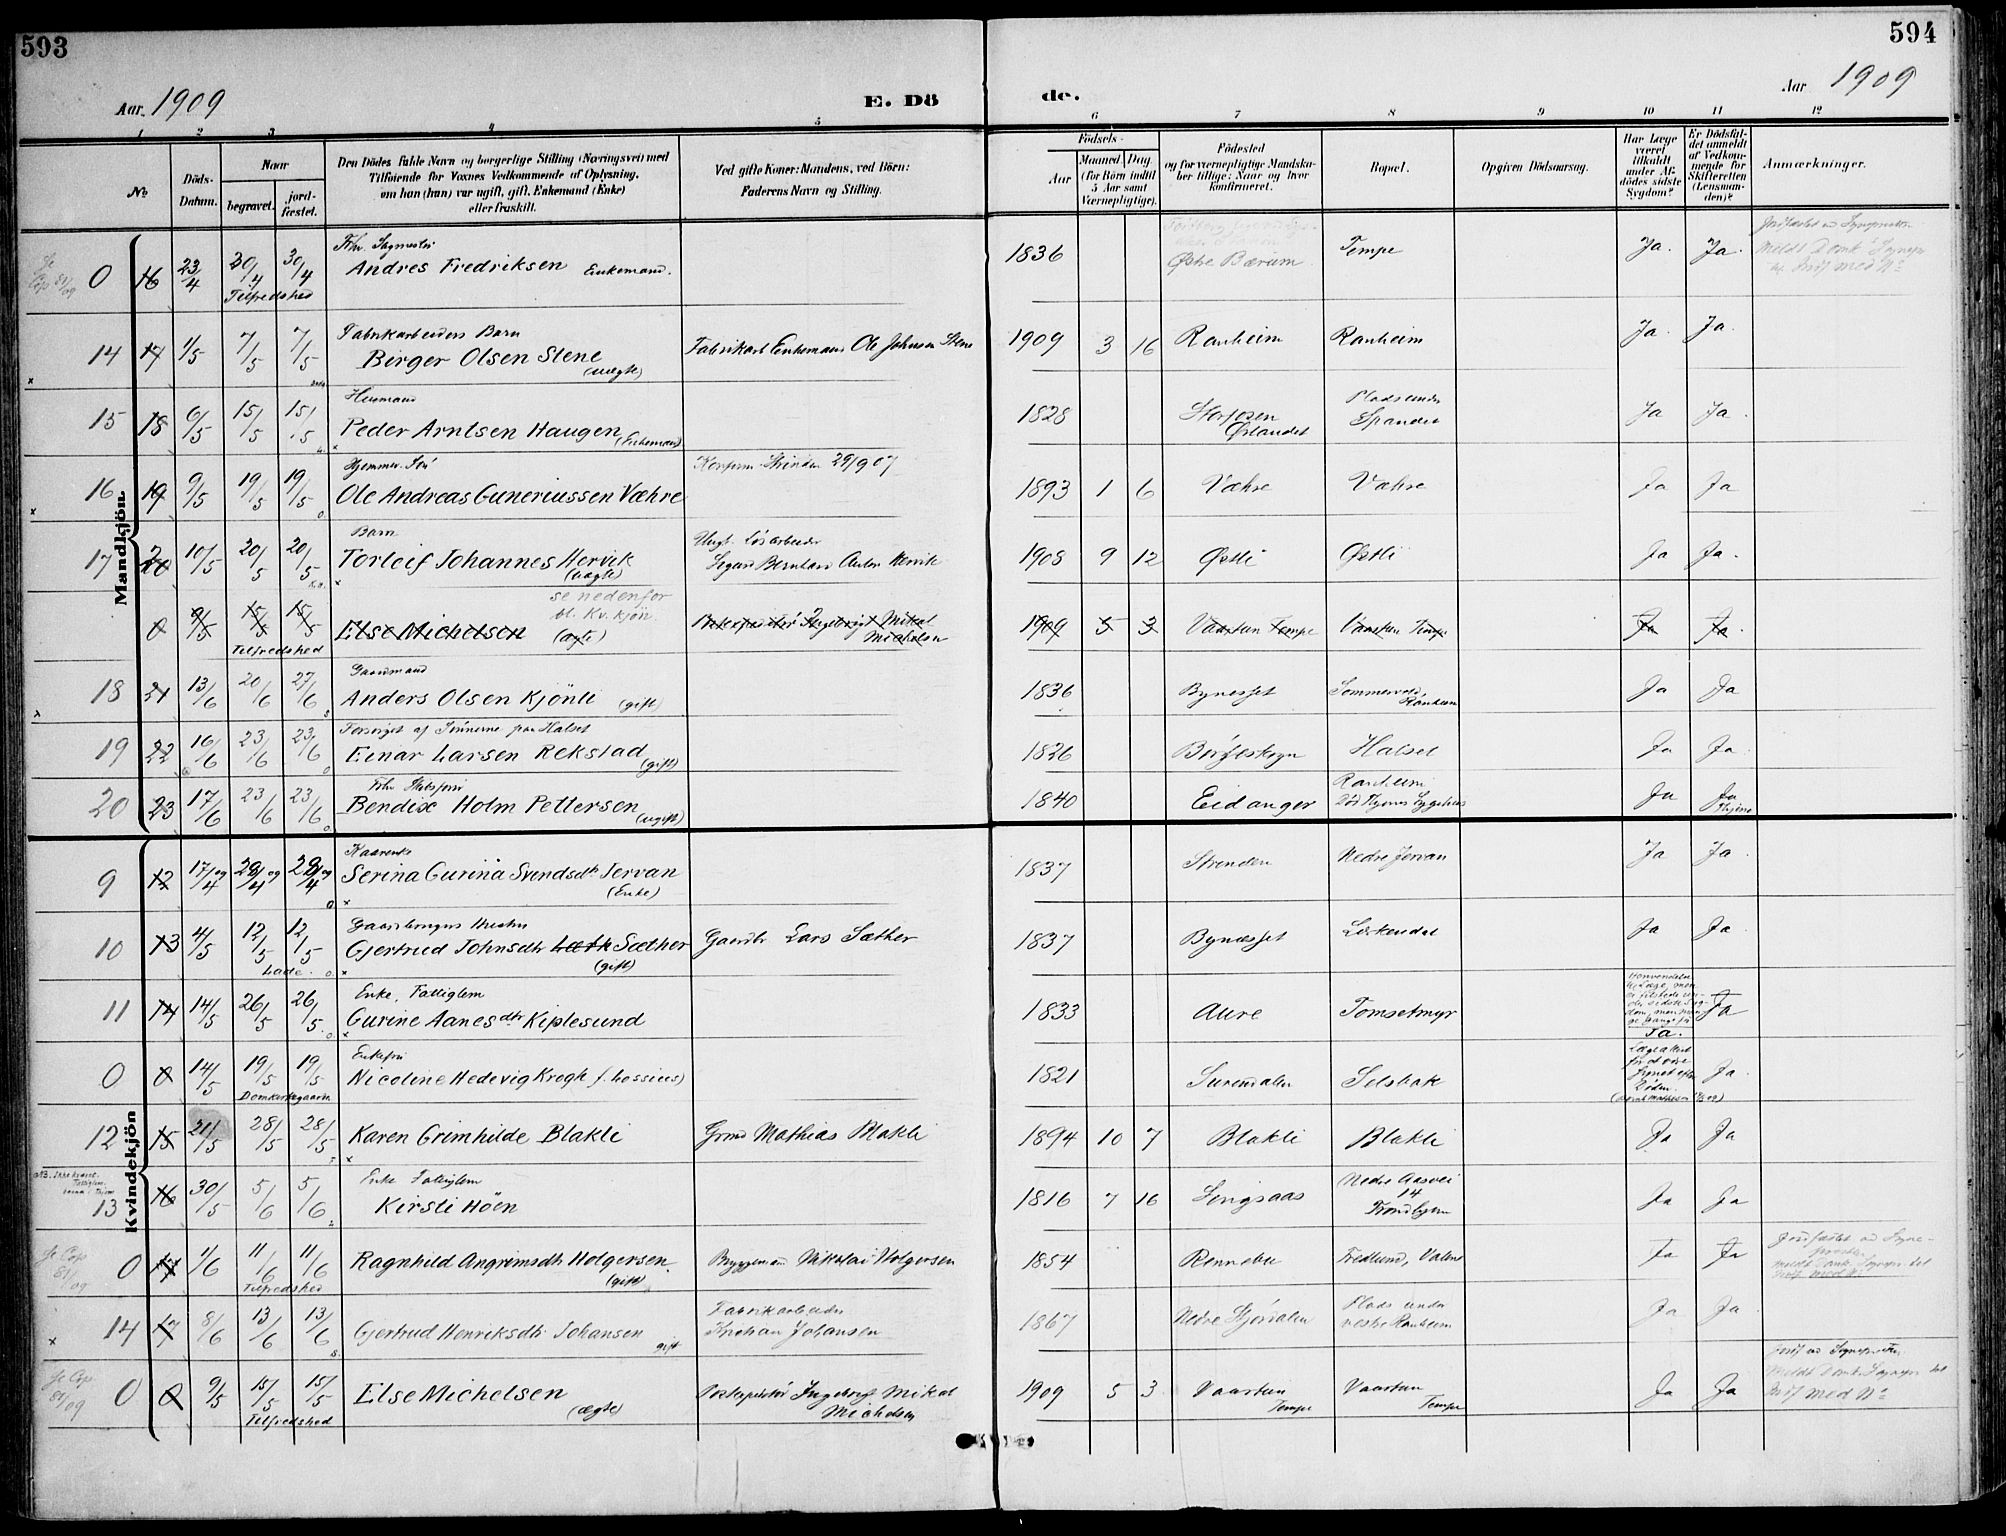 593
594
Aar. 1909
E. Dö
de.
Aar 1909
1 2 3 4 5 6 7 8 9 10 11 12
No
Döds-
Datum.
Naar
begravet.
jord-
fæstet.
Den Dödes fulde Navn og borgerlige Stilling (Næringsvei) med
Tilföiende for Voxnes Vedkommende af Oplysning,
om han (hun) var ugift, gift, Enkemand (Enke)
eller fraskilt.
Ved gifte Koner: Mandens, ved Börn:
Faderens Navn og Stilling.
Födsels-
Aar
Maaned. Dag.
(for Börn indtil
5 Aar samt
Værnepligtige).
Födested
og for værnepligtige Mandska-
ber tillige: Naar og hvor
konfirmeret.
Bopæl.
Opgiven Dödsaarsag.
Har Læge
været
tilkaldt
under Af-
dödes sidste
Sygdom?
Er Dödsfal-
det anmeldt
af Vedkom-
mende for
Skifteretten
(Lensman-
den)?
Anmærkninger.
Mandkjön
0 16 23/4 30/4 30/4 Andres Fredriksen Enkemand. 1836 Østre Bærum Tempe Ja. Ja.
Tilfredshed
Fabrikarbeiders Barn
14 17 1/5 7/5 7/5 Birger Olsen Stene (uægte) Fabrikarb Enkemand Ole Johnsen Stene 1909 3 16 Ranheim Ranheim Ja. Ja.
Husmand Plads under
15 18 6/5 15/5 15/5 Peder Arntsen Haugen (Enkemand) 1828 Storfosen Ørlandet Spandet Ja Ja.
Hjemmev. Søn Konfirm. Strinden 29/9 07
16 19 9/5 19/5 19/5 Ole Andreas Guneriussen Væhre 1893 1 6 Væhre Væhre Ja Ja
Barn Ungk. Løsarbeider
17 20 10/5 20/5 20/5 Torleif Johannes Hervik (uægte) Sigurd Bernhard Anton Hervik 1908 9 12 Østli Østli Ja Ja.
se nedenfor
bl. Kv.kjön
0 9/5 15/5 15/5 Else Michelsen (ægte) Mikal Michelsen 1909 5 3 Vaartun Tempe Vaartun Tempe Ja Ja.
Tilfredshed
Gaardmand
18 21 13/6 20/6 27/6 Anders Olsen Kjönli (gift) 1836 Bynesset Ranheim Ja Ja
Forsörget af Sönnerne paa Halset
19 22 16/6 23/6 23/6 Einar Larsen Rekstad (gift) 1826 Halset Ja Ja.
20 23 17/6 23/6 23/6 Bendix Holm Pettersen (ugift) 1840 Eidanger Ranheim Ja Ja
Kvindekjön
Kaarenke
9 12 17/4 29/4 29/4 Serina Gurina Svendsdtr Jervan (Enke) 1837 Strinden Nedre Jervan Ja Ja.
Gaardbrugers Hustru
10 13 4/5 12/5 12/5 Gjertrud Johnsdtr Sæther (gift) Gaardbr Lars Sæther 1837 Bynæsset Lerkendal Ja Ja.
Lade.
Enke, Fattiglem
11 14 14/5 26/5 26/5 Gurine Aanesdtr Kiplesund 1833 Aure Tomsetmyr Ja. Ja
Enkefru
0 0 14/5 19/5 19/5 Nicoline Hedevig Krogh f. Lossius) 1821 Surendalen Selsbak Ja.
Domkirkegaarden
12 15 21/5 28/5 28/5 Karen Grimhilde Blakli Grmd Mathias Blakli 1894 10 7 Blakli Blakli Ja Ja
Enke Fattiglem Nedre Aasvei
13 16 30/5 5/6 5/6 Kirsti Höen 1816 7 16 Singsaas 14 Trondhjem Ja Ja
0 17 1/6 11/6 11/6 Ragnhild Angrimsdtr Holgersen. (gift) Byggemand Nikolai Holgersen 1854 Rennebu Fredlund, Valene Ja Ja
Tilfredshed
Fabrikarbeider Plads under
14 17 8/6 13/6 13/6 Gjertrud Henriksdtr Johansen gift Kristian Johansen 1867 Nedre Stjørdalen vestre Ranheim Ja Ja
0 0 9/5 15/5 15/5 Else Michelsen (ægte) Postexpeditör Ingebrigt Mikal Michelsen 1909 5 3 Vaartun Tempe Vaartun Tempe Ja Ja
Tilfredshed